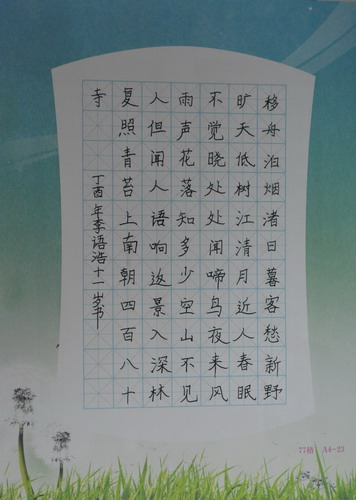 移舟泊烟渚日暮客愁新野
旷天低树江清月近人春眠
不觉晓处处闻啼鸟夜来风
雨声花落知多少空山不见
人但闻人语响返景入深林
复照青苔上南朝四百八十
寺
丁酉年李语浩十一岁书
77格 A4-23